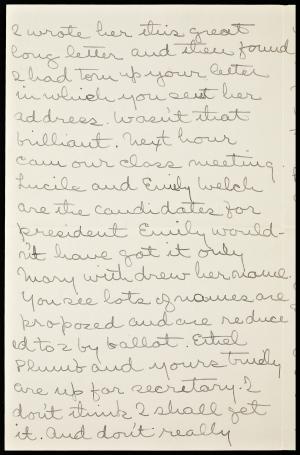 I wrote her this great
long letter and then found
I had torn up your letter
in which you sent her
address. Wasn't that
brilliant. Next hour
cam our class meeting.
Lucile and Emily Welch
are the candidates for
president Emily would-
n't have got it only
Mary withdrew her name.
You see lots of names are
proposed and are reduce
ed to 2 by ballot. Ethel
Plumb and yours truely
are up for secretary. I
don't think I shall get
it. And don't really